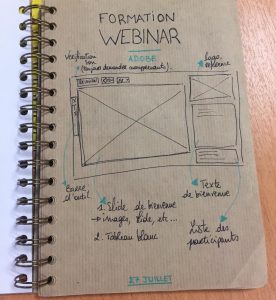 FORMATION
WEBINAR
ADOBE
Vérification
son
(toujours demander
Logo,
Barre
d'outil
1. Slide de bienvenue
→ images, slide, etc...
2. Tableau blanc
Texte
de bienvenue
Liste des
participants
27 JUILLET